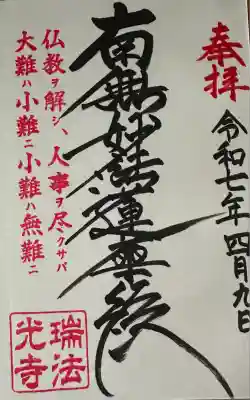 奉拝
令和七年四月九日
南無妙法蓮華経
仏教ヲ解シ、人事ヲ尽クサバ
大難ハ小難ニ小難ハ無難ニ
瑞法
光寺